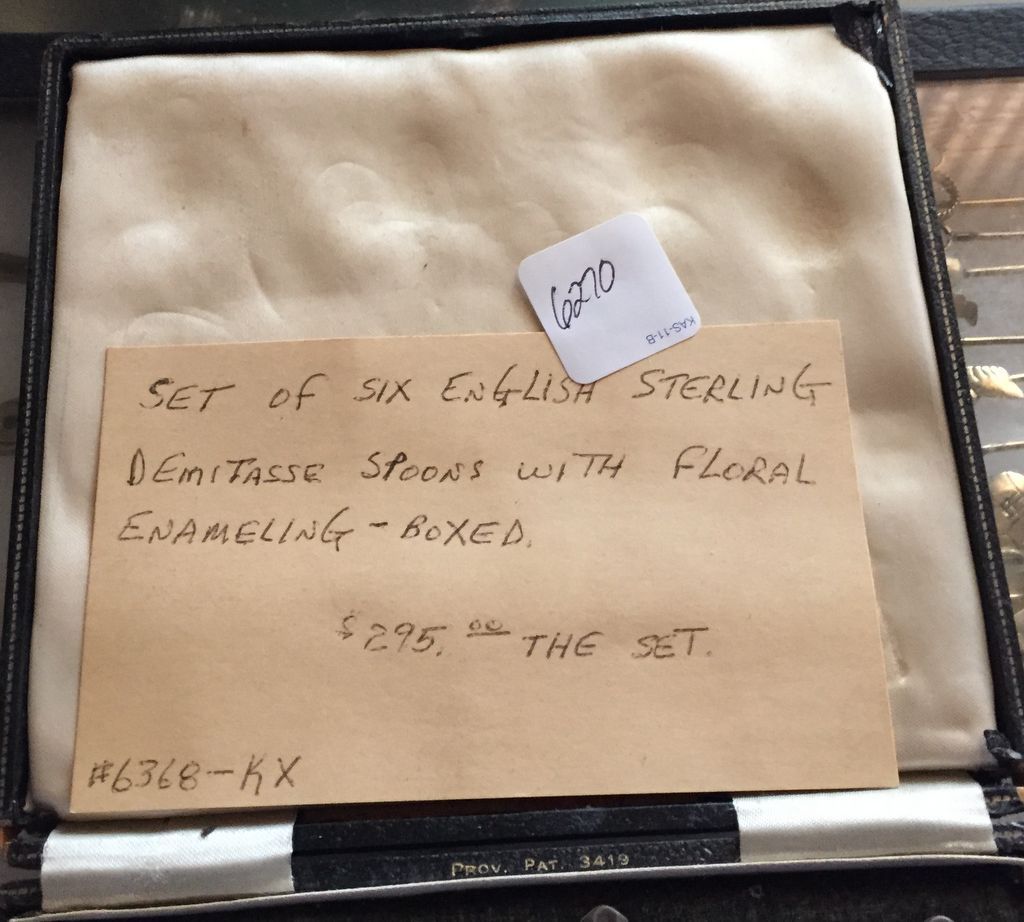 6270
KAS-11-B
SET OF SIX ENGLISH STERLING
DEMITASSE SPOONS WITH FLORAL
ENAMELING - BOXED.
$295.00 THE SET.
#6368-KX
PROV. PAT. 3419